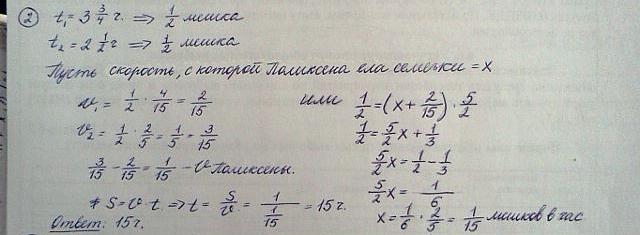 ② t₁ = 3 3/4 г. ⇒ 1/2 мешка
t₂ = 2 1/2 г ⇒ 1/2 мешка
Пусть скорость, с которой Поликсена ела семечки = x
v₁ = 1/2 · 4/15 = 2/15
v₂ = 1/2 · 2/5 = 1/5 = 3/15
3/15 - 2/15 = 1/15 - v Поликсены.
* S = v · t ⇒ t = S/v = 1/(1/15) = 15 г.
Ответ: 15 г.
или
1/2 = (x + 2/15) · 5/2
1/2 = 5/2 x + 1/3
5/2 x = 1/2 - 1/3
5/2 x = 1/6
x = 1/6 · 2/5 = 1/15 мешков в час